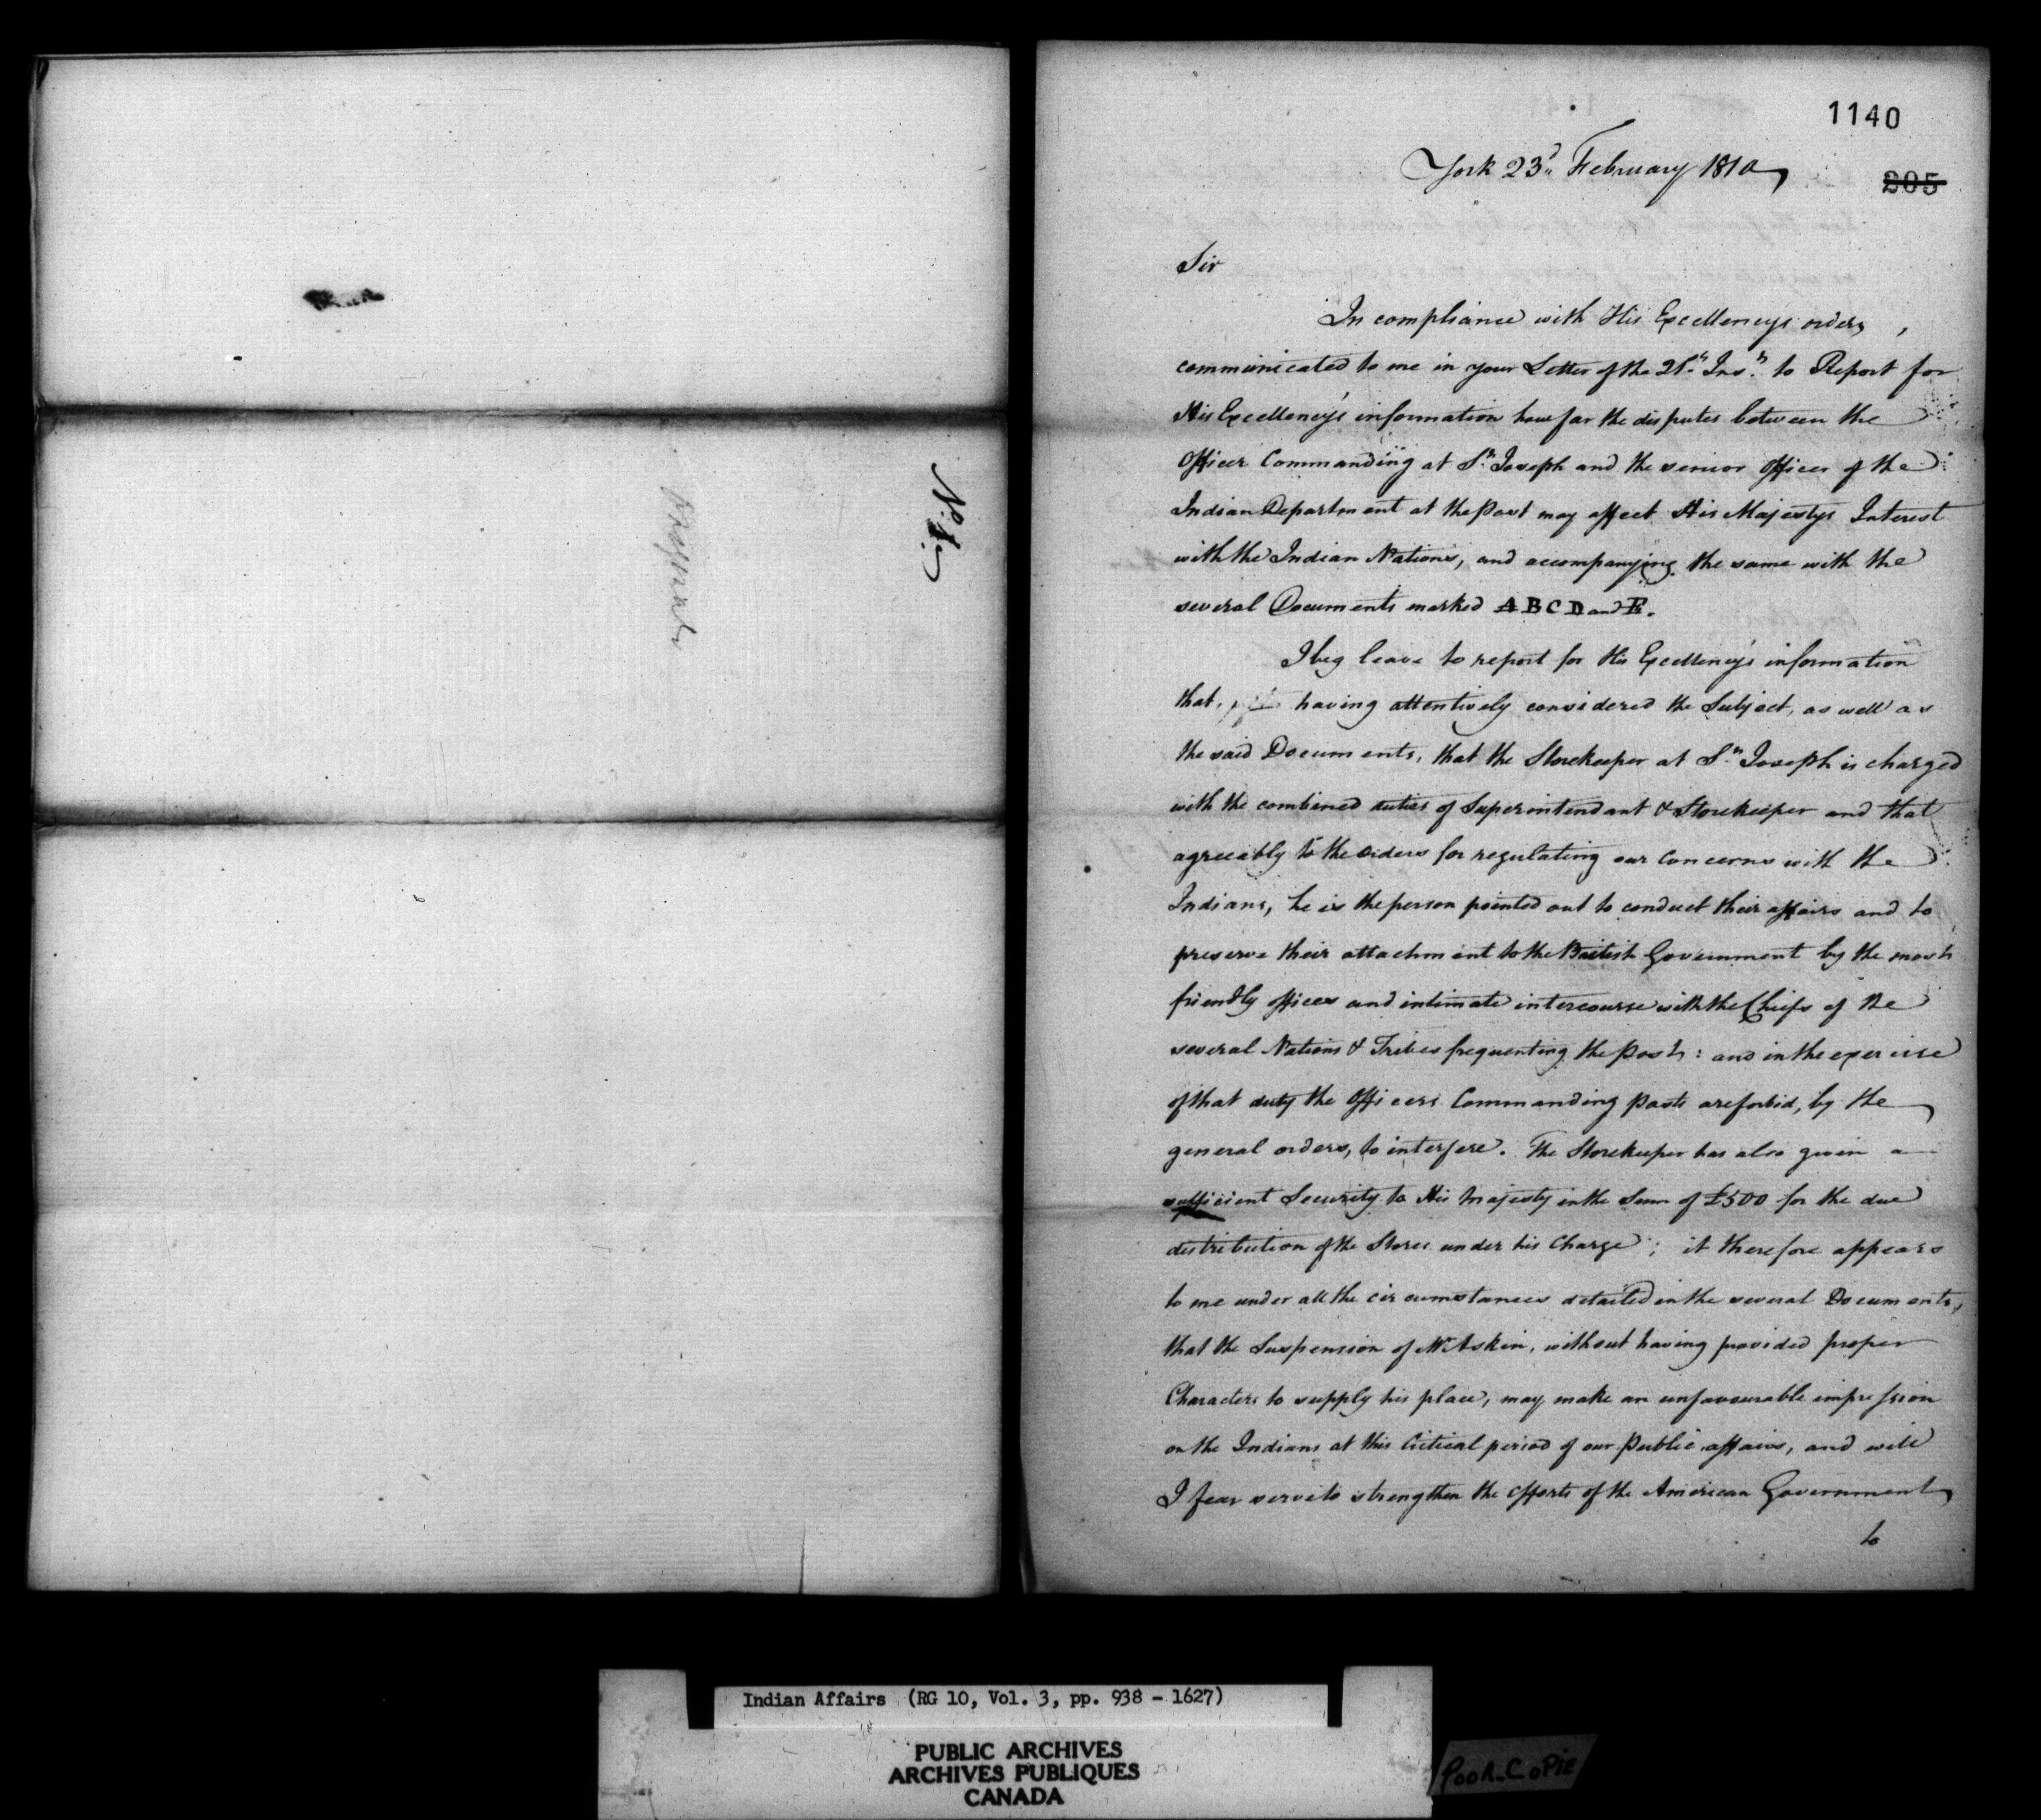 No. 1
1140
York 23d. February 1810
205
Sir
In compliance with His Excellencys orders,
communicated to me in your Letter of the 21st. Inst. to Report for
His Excellency's information how far the disputes between the
Officer Commanding at St. Joseph and the senior Officer of the
Indian Department at the Post may affect His Majestys Interest
with the Indian Nations, and accompanying the same with the
several Documents marked A B C D and E.
I beg leave to report for His Excellency's information
that, having attentively considered the Subject, as well as
the said Documents, that the Storekeeper at St. Joseph is charged
with the combined duties of Superintendant & Storekeeper and that
agreeably to the Orders for regulating our Concerns with the
Indians, he is the person pointed out to conduct their affairs and to
preserve their attachment to the British Government by the most
friendly offices and intimate intercourse with the Chiefs of the
several Nations & Tribes frequenting the Post: and in the exercise
of that duty the Officers Commanding Posts are forbid, by the
general orders, to interfere. The Storekeeper has also given a
sufficient Security to His Majesty in the Sum of £500 for the due
distribution of the Stores under his Charge; it therefore appears
to me under all the circumstances detailed in the several Documents,
that the Suspension of Mr Askin, without having provided proper
Characters to supply his place, may make an unfavourable impression
on the Indians at this Critical period of our Public affairs, and will
I fear serve to strengthen the efforts of the American Government
to
Indian Affairs (RG 10, Vol. 3, pp. 938 - 1627)
PUBLIC ARCHIVES
ARCHIVES PUBLIQUES
CANADA
Poor Copie